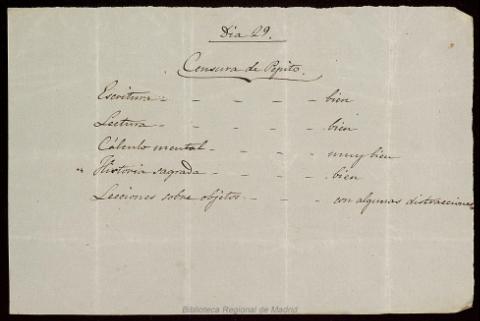 Dia 29.
Censura de Pepito.
Escritura - - - - - bien
Lectura - - - - - bien
Cálculo mental - - - - muy bien
" Historia sagrada - - - - bien
Lecciones sobre objetos - - - con algunas distracciones
Biblioteca Regional de Madrid